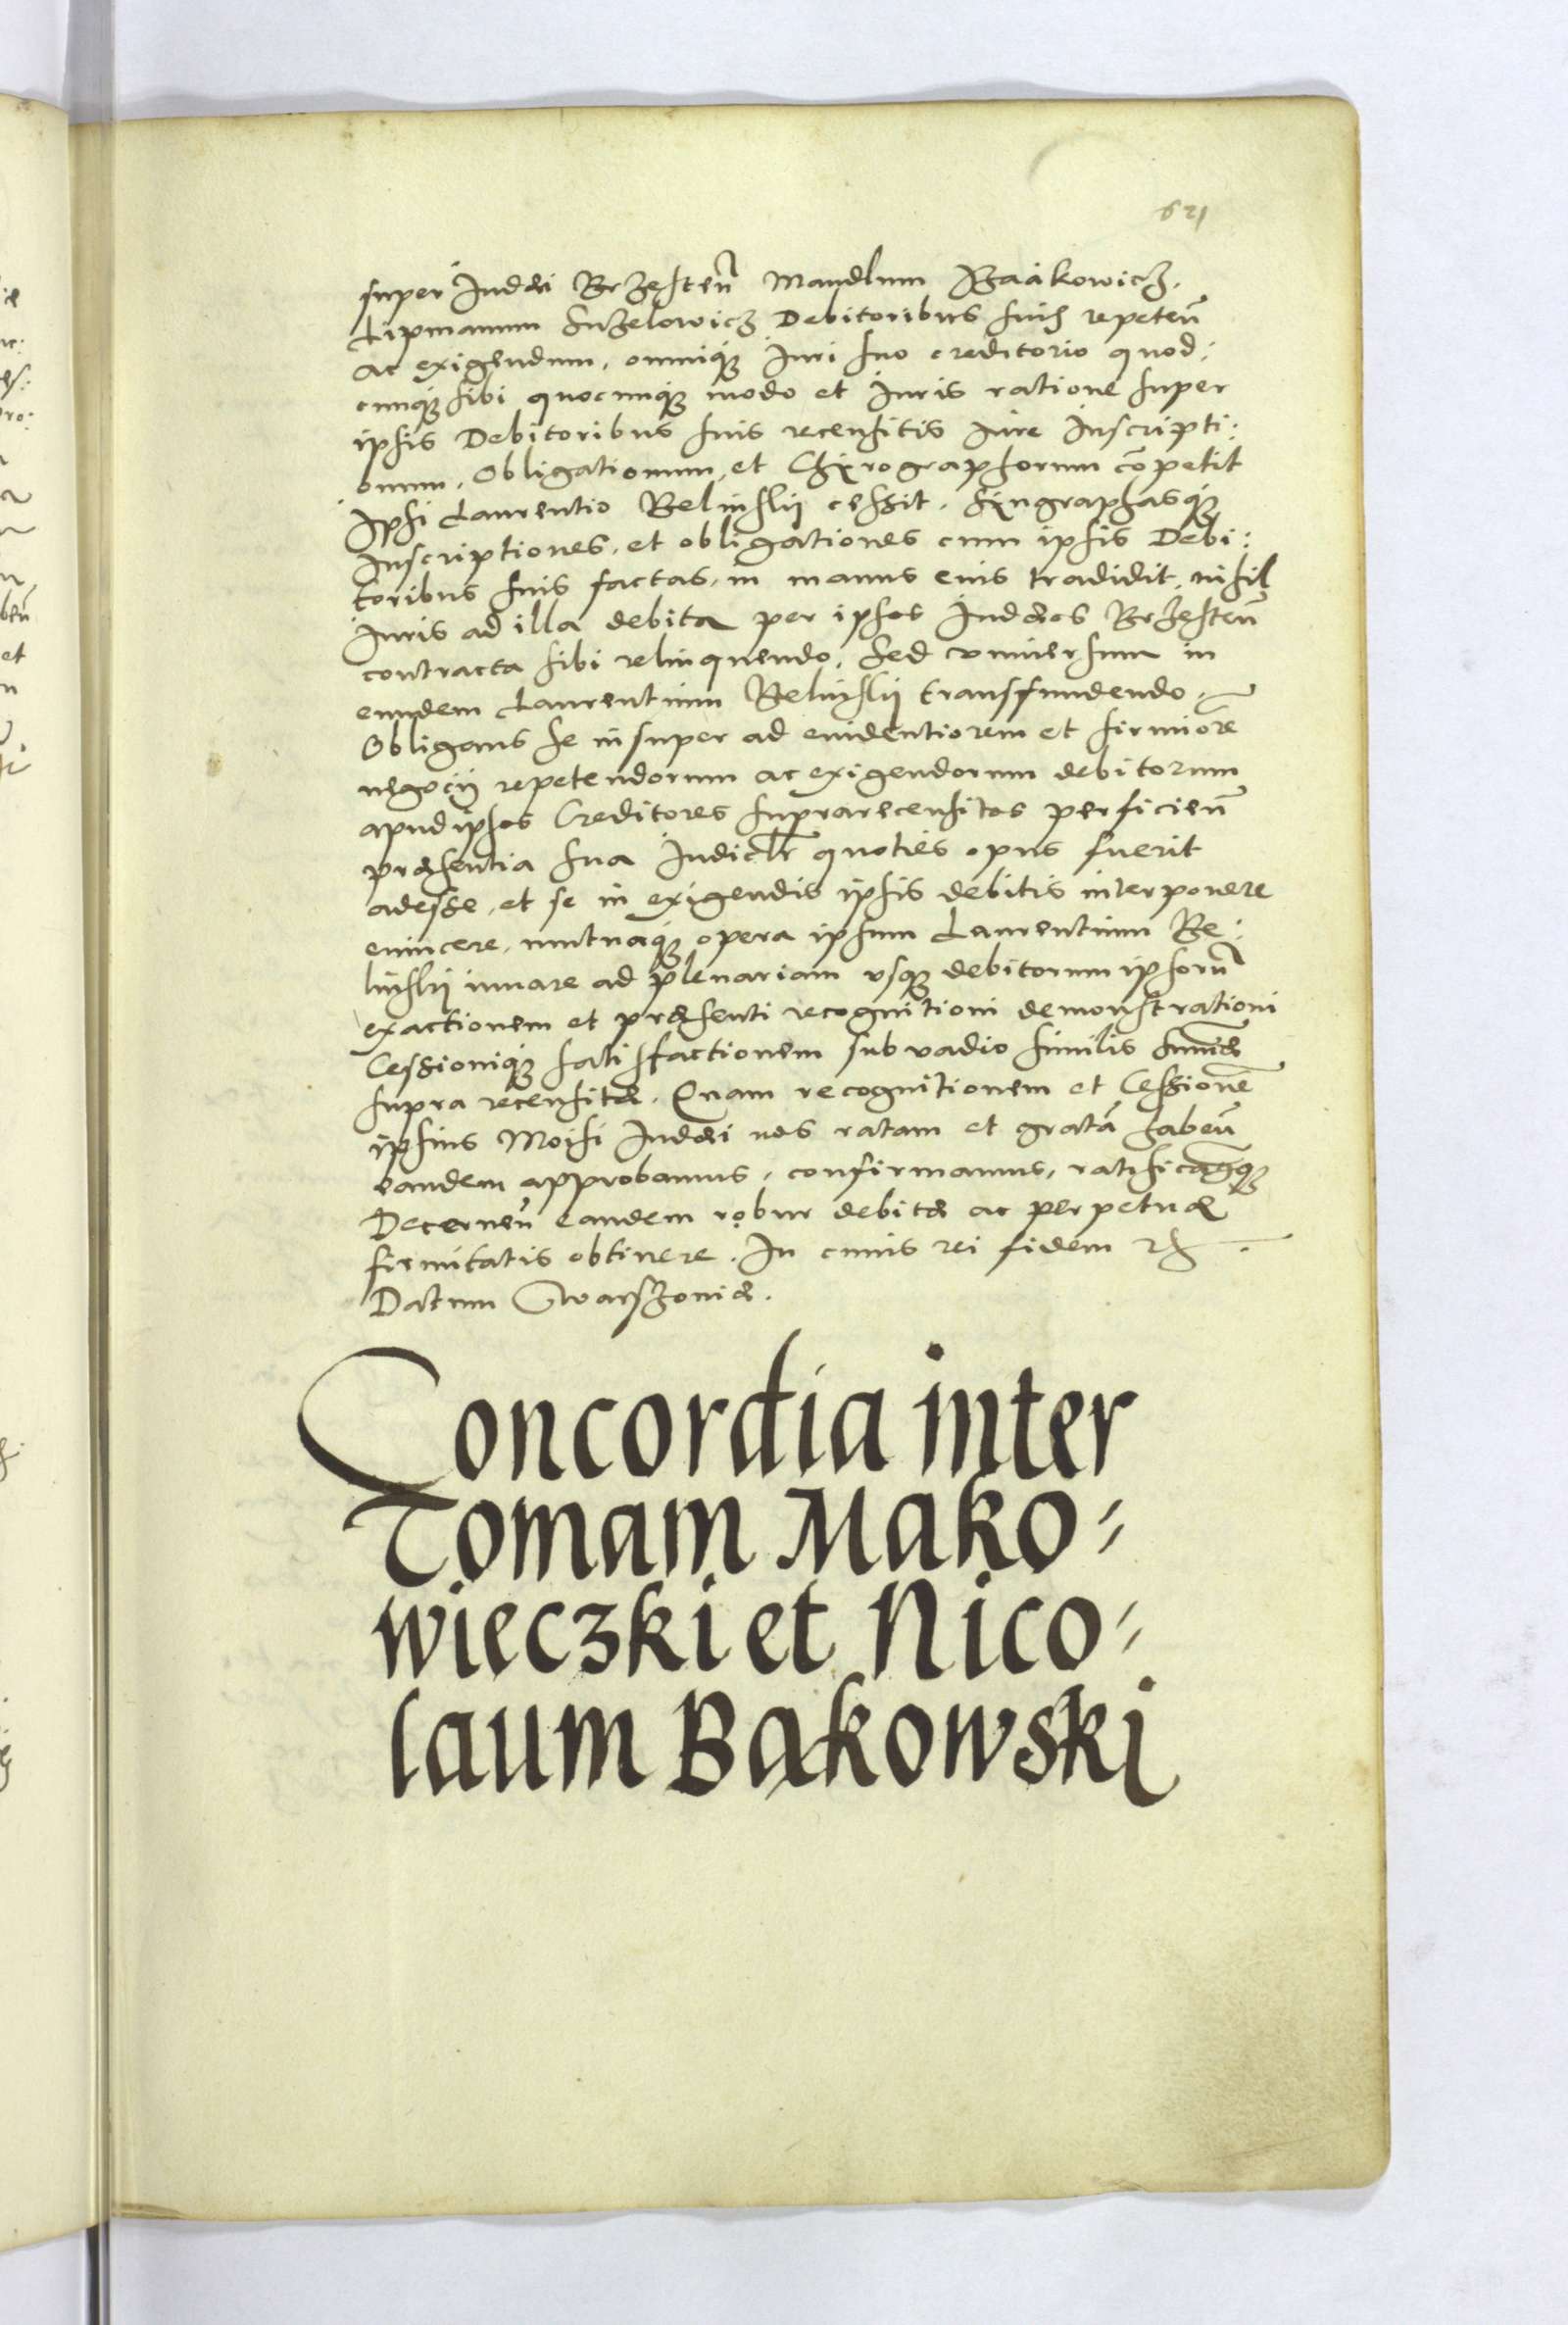 621
super Judæi Brzesten̄ Mandlum Izaakowicz,
Lipmanum Enzelowicz Debitoribus suis repeten̄
ac exigendum, omnique Juri suo creditorio quod:
cunque sibi quocunque modo et Juris ratione super
ipsis Debitoribus suis recensitis Jure Inscripti:
onum, Obligationum, et Chirographorum cōpetit
Ipsi Laurentio Belinslii cessit. Singraphasque
Inscriptiones, et obligationes cum ipsis Debi:
toribus suis factas, in manus eius tradidit, nihil
Juris ad illa debita per ipsos Judæos Brzesten̄
contracta sibi relinquendo, sed vniuersum in
eundem Laurentium Belinslii transfundendo.
Obligans se insuper ad euidentiorem et firmiorē
negocii repetendorum ac exigendorum debitorum
apud ipsos Creditores suprarecensitos perficien̄
præsentia sua Judiclr̄ quoties opus fuerit
adesse, et se in exigendis ipsis debitis interponere
euincere, mutuaque opera ipsum Laurentium Be:
linslii iuuare ad plenariam vsque debitorum ipsorū
exactionem et præsenti recognitioni demonstrationi
Cessionique satisfactionem sub vadio similis sum̄æ
supra recensitæ. Quam recognitionem et Cessionē
ipsius Moisi Judæi nos ratam et gratā haben̄
eandem approbamus, confirmamus, ratificamq̄ue
Decernen̄ eandem robur debitæ ac perpetuæ
firmitatis obtinere. In cuius rei fidem
Datum Warszouiæ.
Concordia inter
Tomam Mako=
wieczki et Nico=
laum Bakowski